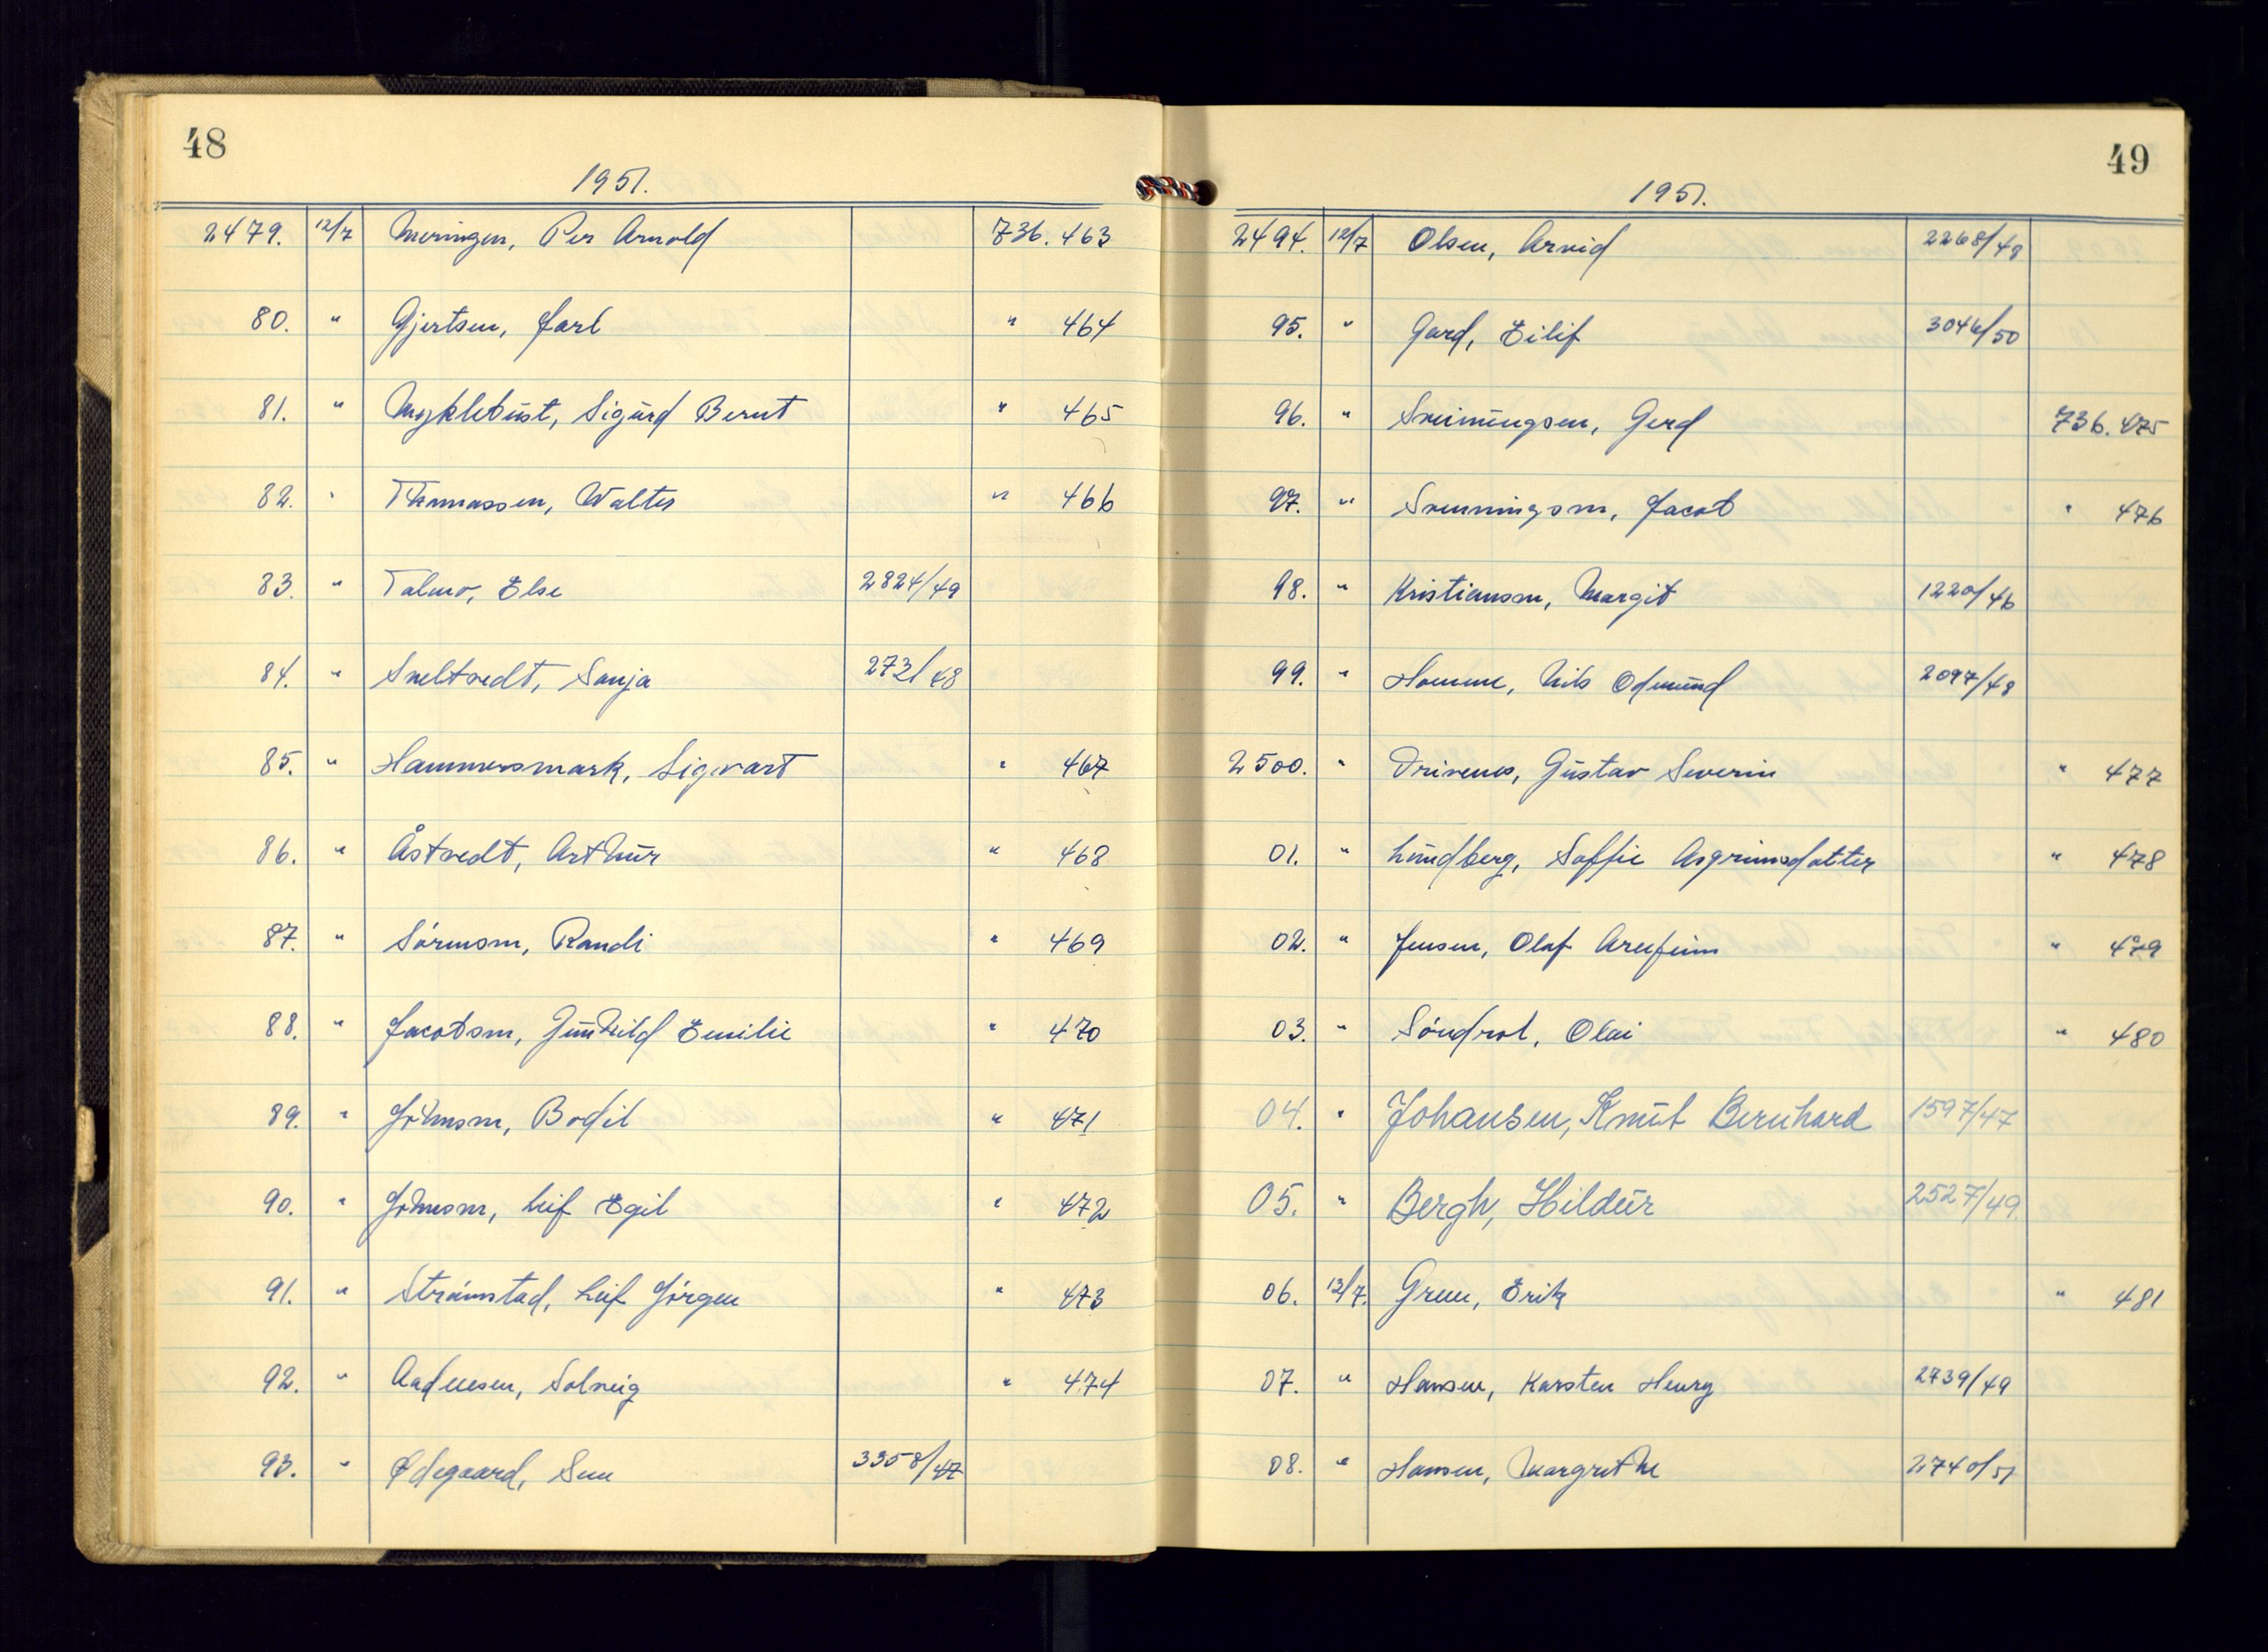 48
1951.
2479. 12/7 Meringen, Per Arnold 736.463
80. " Gjertsen, Jarl " 464
81. " Myklebust, Sigurd Bernt " 465
82. " Thomassen, Walter " 466
83. " Talmo, Else 2824/49
84. " Sneltvedt, Sonja 273/48
85. " Hammersmark, Sigvart " 467
86. " Åstvedt, Arthur " 468
87. " Sörensen, Randi " 469
88. " Jacobsen, Gunhild Emilie " 470
89. " Johnsen, Bodil " 471
90. " Johnsen, Leif Egil " 472
91. " Strömstad, Leif Jörgen " 473
92. " Aadnesen, Solveig " 474
93. " Ødegaard, 3358/47
49
1951.
2494. 12/7 Olsen, Arvid 2268/48
95. " Gard, Eilif 3046/50
96. " Svenningsen, Gerd 736.475
97. " Svenningsen, Jacob " 476
98. " Kristiansen, Margit 1220/46
99. " Homme, Nils Odmund 2097/48
2500. " Drivenes, Gustav Severin " 477
01. " Lundberg, Soffie Asgrimsdatter " 478
02. " Jensen, Olaf Arnfinn " 479
03. " Söndrol, Olai " 480
04. " Johansen, Knut Bernhard 1597/47
05. " Bergh, Hildur 2527/49.
06. 13/7. Gren, Erik " 481
07. " Hansen, Karsten Henry 2739/49
08. " Hansen, Margrethe 2740/51